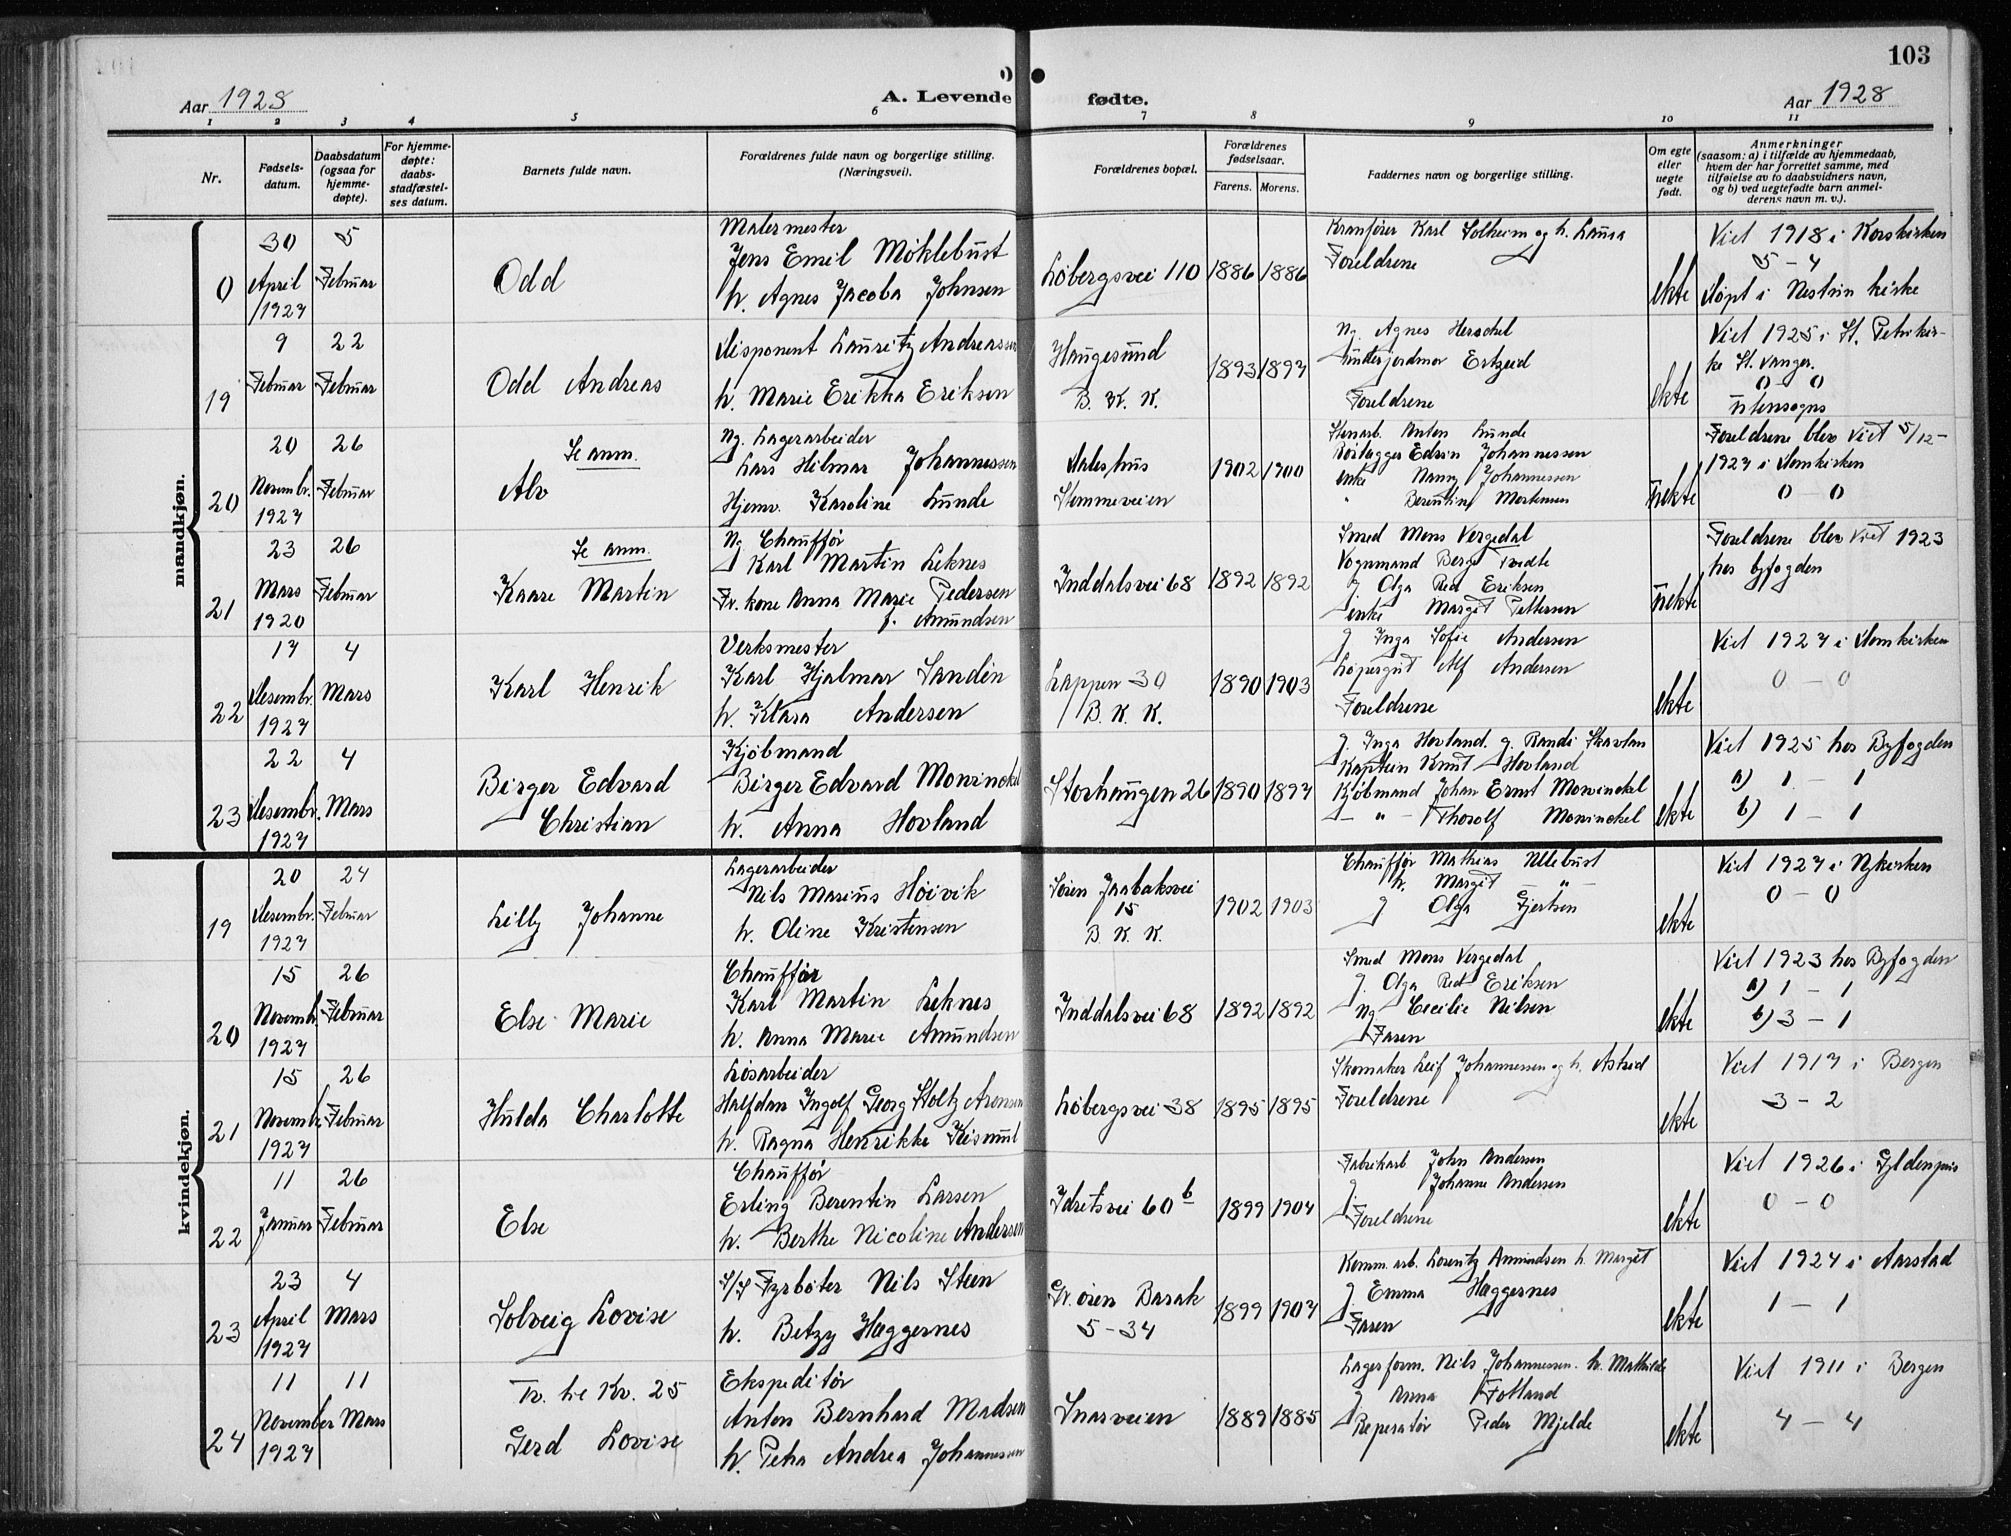 103
Aar 1928
A. Levende fødte.
Aar 1928
1 2 3 4 5 6 7 8 9 10 11
Nr.
Fødsels-
datum.
Daabsdatum
(ogsaa for
hjemme-
døpte).
For hjemme-
døpte:
daabs-
stadfæstel-
ses datum.
Barnets fulde navn.
Forældrenes fulde navn og borgerlige stilling.
(Næringsvei).
Forældrenes bopæl.
Forældrenes
fødselsaar.
Farens. Morens.
Faddernes navn og borgerlige stilling.
Om egte
eller
uegte
født.
Anmerkninger
(saasom: a) i tilfælde av hjemmedaab,
hvem der har forrettet samme, med
tilføielse av to daabsvidners navn,
og b) ved uegtefødte barn anmel-
derens navn m. v.).
mandkjøn.
0
30
April
1927
5
Februar
Odd
Malermester
Jens Emil Møklebust
h. Agnes Jacoba Johnsen
Løbergsvei 110
1886 1886
Kranfører Karl Solheim og h. Laura
Foreldrene
ekte
Viet 1918 i Korskirken
5 - 4
Døpt i Nestun kirke
19
9
Februar
22
Februar
Odd Andreas
Disponent Lauritz Andreassen
h. Marie Erikka Eriksen
Haugesund
B. K. K.
1893 1897
Ng. Agnes Herschel
Underjordmor Ertzeid
Foreldrene
ekte
Viet 1925 i St. Petrikir-
ke St. vanger.
0 - 0
Utensogns
20
20
Novembr.
1927
26
Februar
Se anm.
Alv
Ng. Lagerarbeider
Lars Hilmar Johannessen
Hjemv. Karoline Lunde
Daleshus
Stemmeveien
1902 1900
Stenarb. Anton Lunde
Rørlegger Edvin Johannessen
enke Nanny Johannessen
" Berentine Mortensen
uekte
Foreldrene blev viet 5/12-
1927 i Domkirken
0 - 0
21
23
Mars
1920
26
Februar
Se anm.
Kaare Martin
Ng Chauffør
Karl Martin Leknes
Fr. kone Anna Marie Pedersen
f. Amundsen
Inddalsvei 68
1892 1892
Smed Mons Vergedal
Vognmand Berge Tvedte
J Olga Red Eriksen
enke Margit Pettersen
uekte
Foreldrene blev viet 1923
hos byfogden
22
17
Desembr.
1927
4
Mars
Karl Henrik
Verksmester
Karl Hjalmar Sandin
h. Klara Andersen
Lappen 30
B. K. K.
1890 1903
J Inga Sofie Andersen
Løpergut Alf Andersen
Foreldrene
ekte
Viet 1927 i Domkirken
0 - 0
23
22
Desembr.
1927
4
Mars
Birger Edvard
Christian
Kjøbmand
Birger Edvard Monsinckel
h. Anna Hovland
Storhaugen 26
1890 1897
J. Inga Hovland. g. Randi Skavlan
Kaptein Knut Hovland
Købmand Johan Ernst Monsinckel
— " — Thorolf Monsinckel
ekte
Viet 1925 hos Byfogden
a) 1 - 1
b) 1 - 1
kvindekjøn.
19
20
Desembr.
1927
24
Februar
Lilly Johanne
Lagerarbeider
Nils Marius Høivik
h. Oline Kristensen
Søren Jaabaksvei
15
B. K. K.
1902 1903
Chauffør Mathias Ullebust
h. Margit — " —
J Olga Gjertsen
ekte
Viet 1927 i Nykirken
0 - 0
20
15
Novembr.
1927
26
Februar
Else Marie
Chauffør
Karl Martin Leknes
h. Anna Marie Amundsen
Inddalsvei 68
1892 1892
Smed Mons Vergedal
J. Olga Red Eriksen
Ng Cecilie Nilsen
Faren
ekte
Viet 1923 hos Byfogden
a) 1 - 1
b) 3 - 1
21
15
Novembr.
1927
26
Februar
Hulda Charlotte
Løsarbeider
Halfdan Ingolf Georg Stoltz Arensen
h. Ragna Henrikke Kismul
Løbergsvei 38
1895 1895
Skomaker Leif Johannessen og h. Astrid
Foreldrene
ekte
Viet 1917 i Bergen
3 - 2
22
11
Januar
26
Februar
Else
Chauffør
Erling Berentin Larsen
h. Berthe Nicoline Andersen
Idretsvei 60 b
1899 1904
Fabrikarb John Andersen
J Johanne Andersen
Foreldrene
ekte
Viet 1926 i Gyldenpris
0 - 0
23
23
April
1927
4
Mars
Solveig Lovise
S/S Fyrbøter Nils Steen
h. Betzy Hæggernes
Gr. ören Barak
5 - 34
1899 1907
Komm. arb. Lorentz Amundsen h. Margit
J. Emma Hæggernes
Faren
ekte
Viet 1924 i Aarstad
1 - 1
24
11
November
1927
11
Mars
Tv. se Kv. 25
Gerd Lovise
Ekspeditør
Anton Bernhard Madsen
h. Petra Andrea Johannessen
Snarveien
1889 1885
Lagerform. Nils Johannessen. h. Mathilde
J. Anna Fotland
Reperatør Peder Mjelde
ekte
Viet 1911 i Bergen
4 - 4